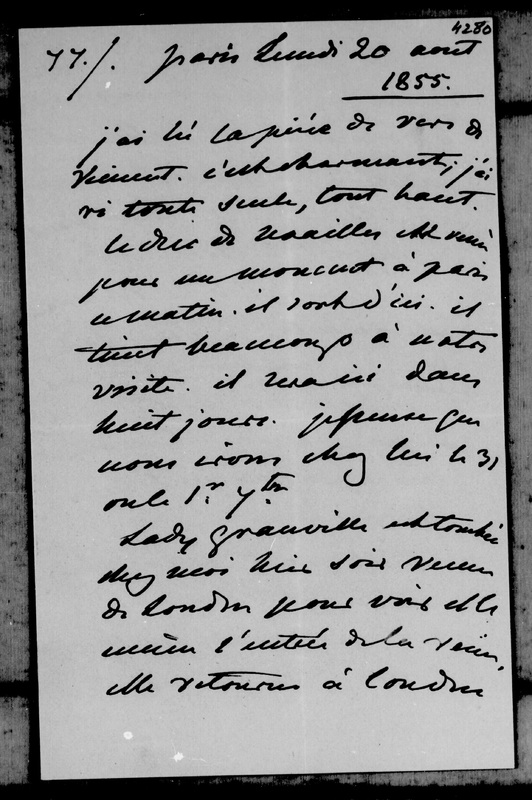 4280
77./. Paris Lundi 20 aout
1855.
j'ai lu la pièce de vers de
Viennet. c'est charmant; j'ai
ri toute seule, tout haut.
le duc de Noailles est venu
pour un moment à Paris
ce matin. il sort d'ici. il
tient beaucoup à notre
visite. il sera ici dans
huit jours. je pense que
nous irons chez lui le 31
ou le 1er 7bre
Lady Granville est tombée
chez moi hier soir venue
de Londres pour voir elle
même l'entrée de la reine.
elle retourne à Londres